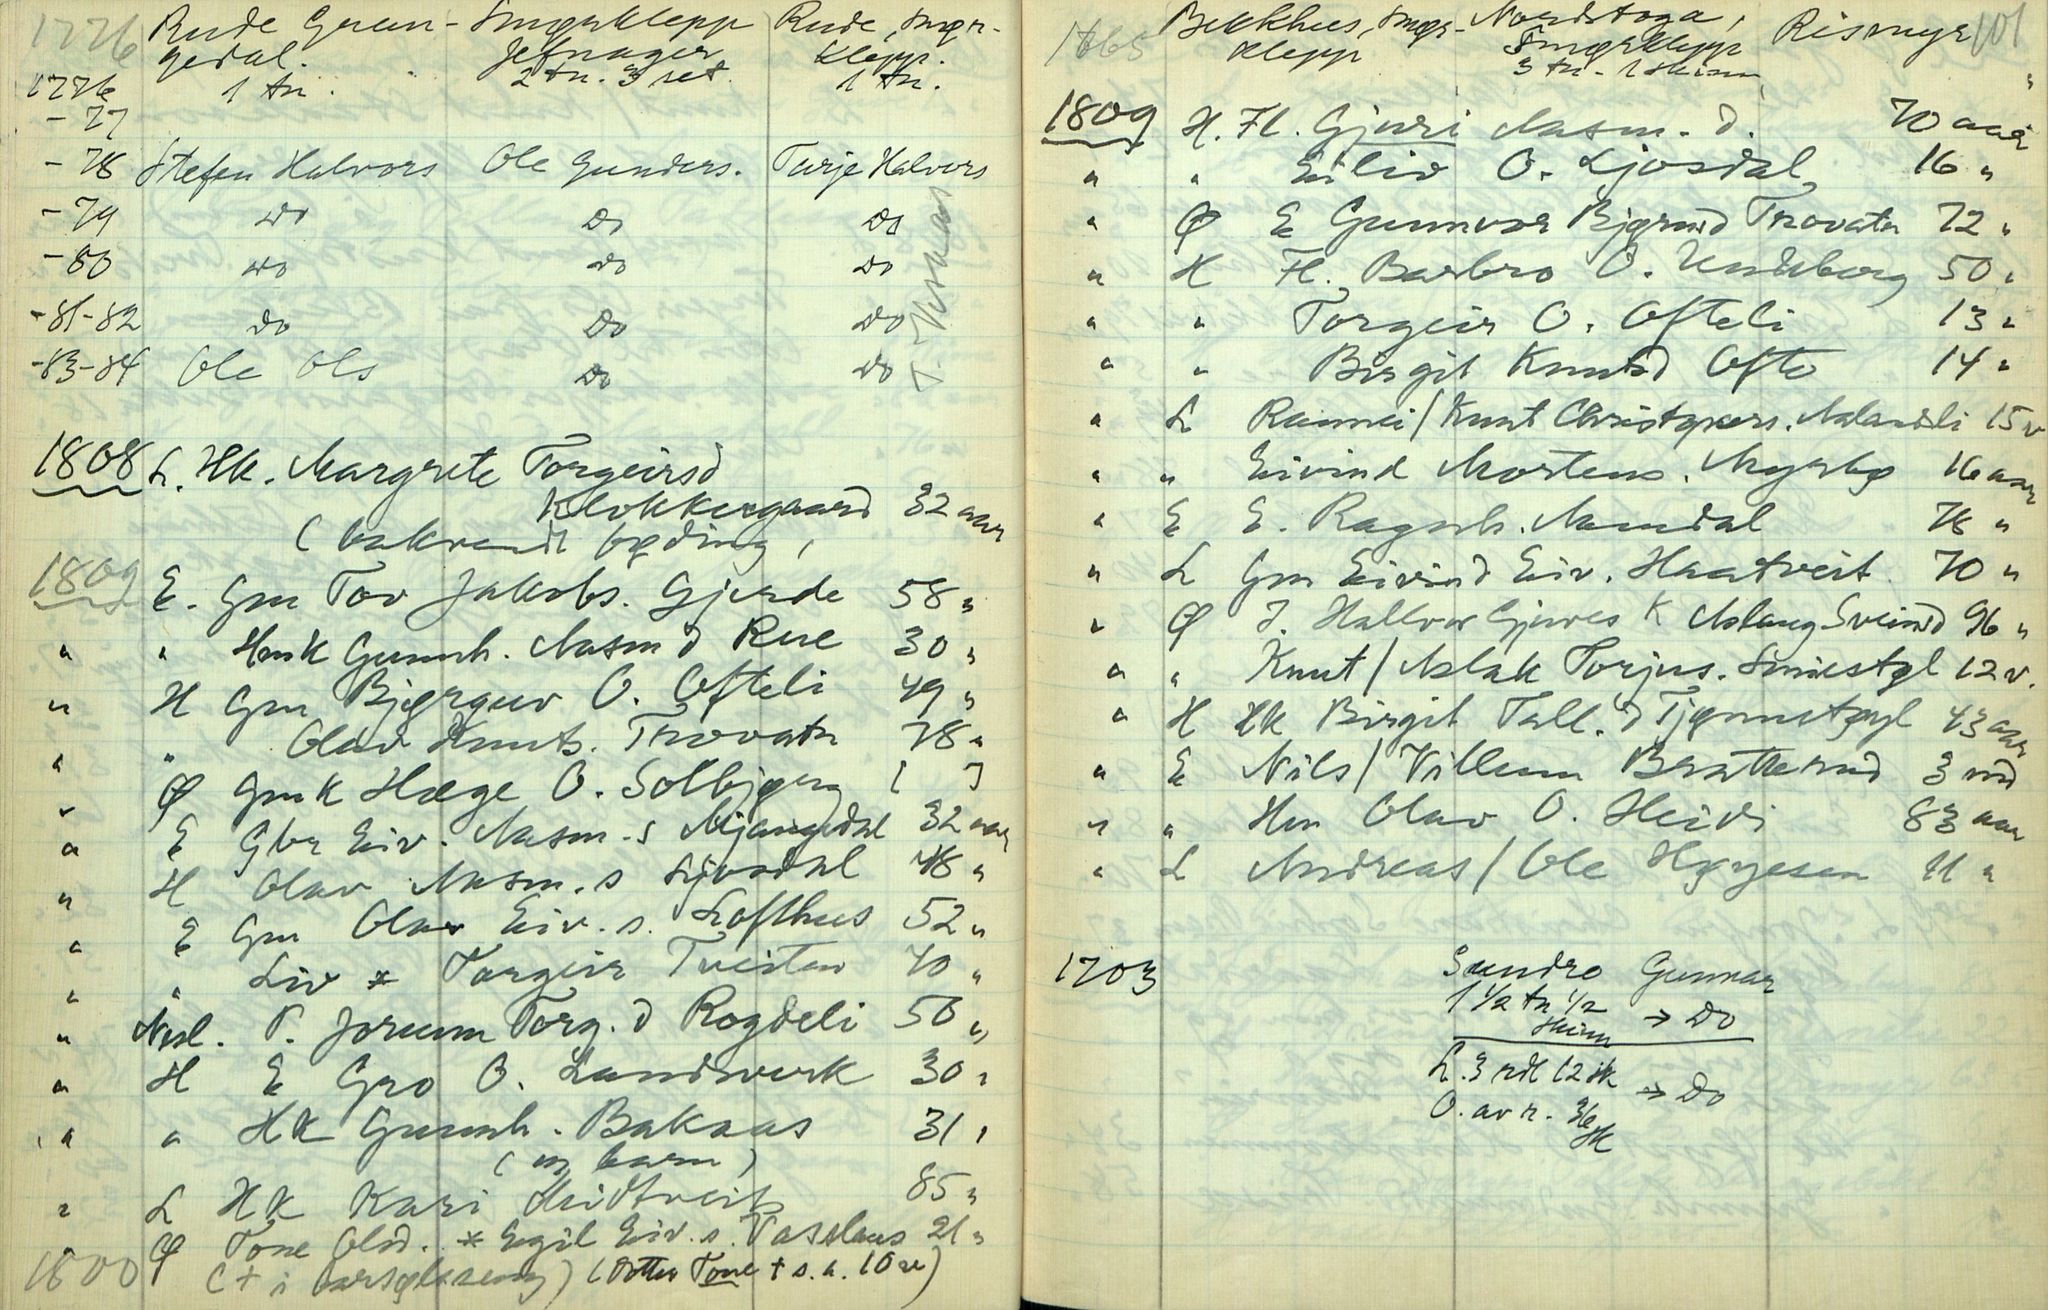 1776 Rude Grun- Smørklepp Rude, Smør-
gedal. Jefnager klepp.
1776 1 tn. 2 tn. 3 set. 1 tn.
- 77
- 78 Stefen Halvors Ole Gunders. Turje Halvors
- 79 Do Do Do
- 80 Do Do Do
- 81-82 Do Do Do
- 83-84 Ole Ols Do Do
1808 L. Hk. Margrete Torgeirsd
Klokkergaard 32 aar
( bakvendt føding )
1809 E. Gm Tov Jakobs. Gjerde 58 "
" " Hmk Gunnh. Aasm d Rue 30 "
" H Gm Bjørguv O. Ofteli 49 "
" " Olav Knuts. Trovatn 78 "
" Ø Gmk Hæge O. Solbjørg [ ]
" E Gbr Eiv. Aasm. s Mjaugedal 32 aar
" H Olav Aasm. s Ljosdal 48 "
" E Gm Olav Eiv. s. Lofthus 52 "
" " Liv * Torgeir Tveiten 70 "
" Nesl. T. Jorunn Torg. d Rogdeli 50 "
" H E Gro O. Landsverk 30 "
" " Hk Gunnh. Bakaas 31 "
( m barn )
" L Hk Kari Midtveit 85 "
" Ø Tone Olsd. * Egil Eiv. s. Vasslaus 21 "
1800 ( + i barselseng ) ( Dotter Tone + s. a. 10 v )
1865 Bekkhus, Smør- Nordstoga, Rismyr 101
klepp Smørklepp
3 tn - 1 skinn "
1809 H. Fl. Gjuri Aasm. d. 70 aar
" " Eiliv O. Ljosdal 16 "
" Ø E Gunnvor Bjørnsd Trovatn 72 "
" H Fl. Barbro O. Underberg 50 "
" " Torgeir O. Ofteli 13 "
" " Birgit Knutsd Ofte 14 "
" L Rannei / Knut Christopers. Aalandsli 15 v
" " Eivind Mortens. Myrbø 16 aar
" E E. Ragnh. Mandal 78 "
" L Gm Eivind Eiv. Haatveit 70 "
" Ø J. Hallvor Gjuves K Aslaug Sveinsd 96 "
" " Knut / Aslak Torjus. Smiestøl 12 v.
" H Hk Birgit Tall. d Tjønnstøyl 43 aar
" E Nils / Villum Bratterud 3 md
" " Hm Olav O. Heidi 83 aar
" L Andreas / Ole Høyesen 11 "
1703 Sundro Gunnar
1 1/2 tn 1/2 → Do
skinn
L. 3 rdl 12 sk → Do
O. av r. 36
sk